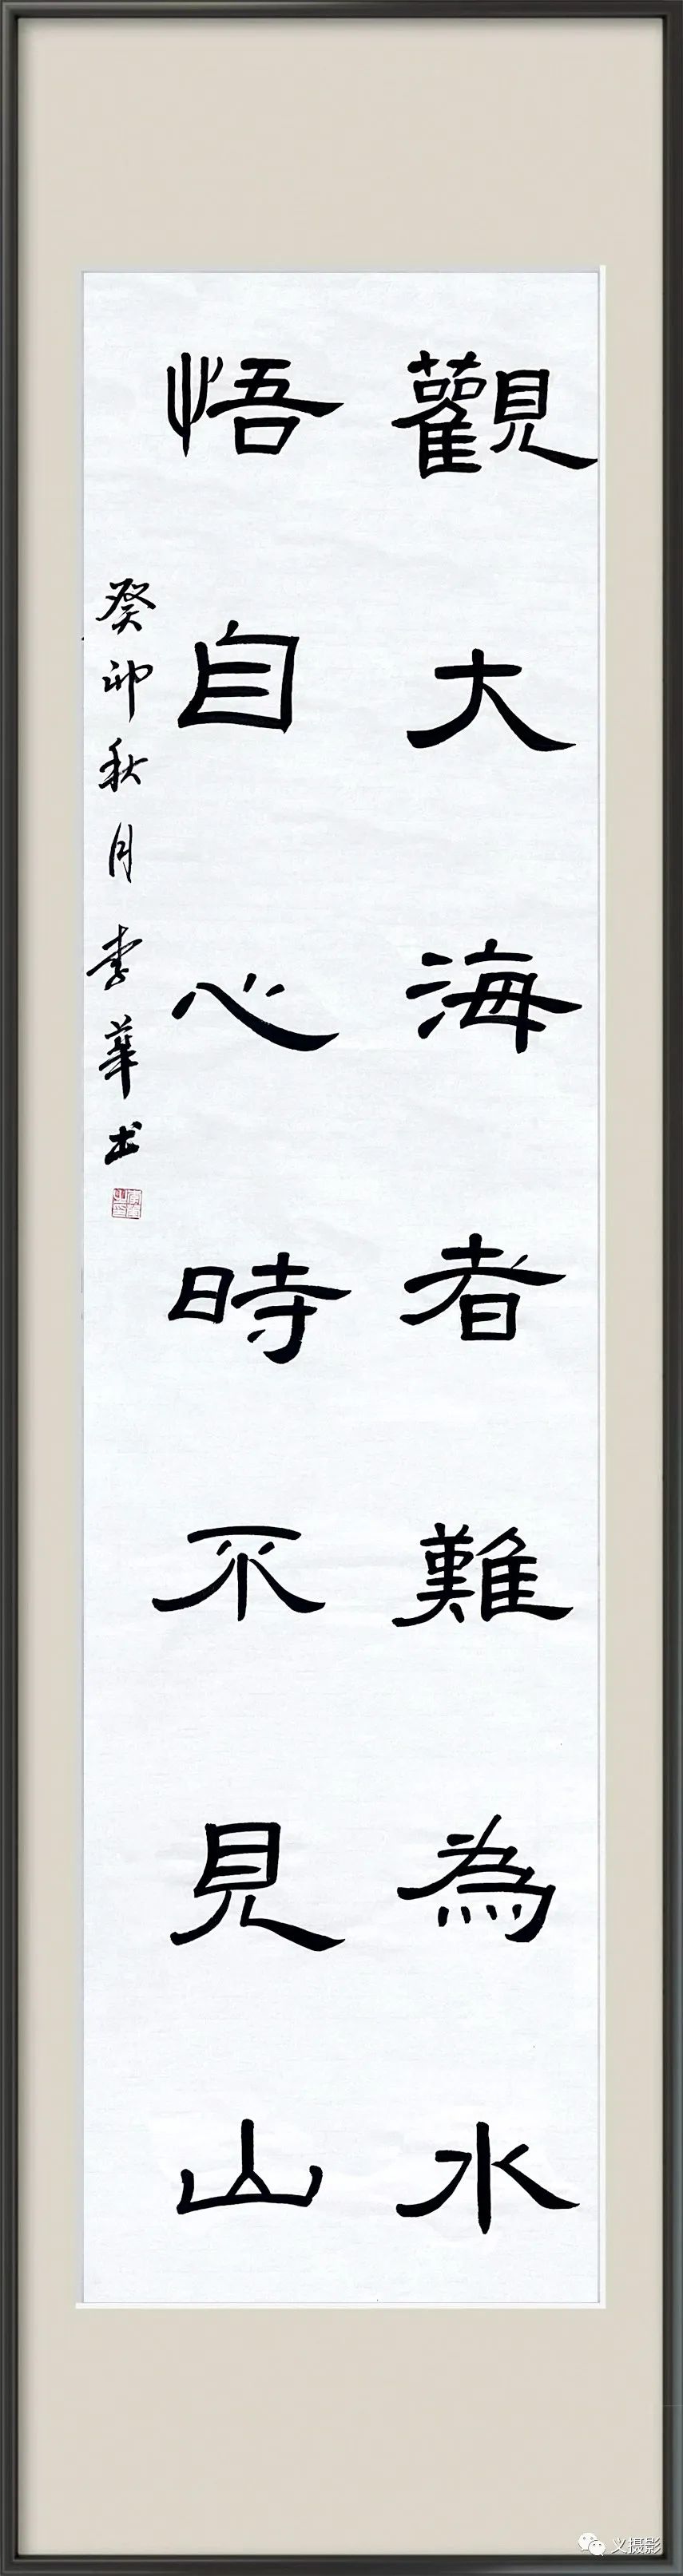 觀大海者難為水
悟自心時不見山
癸卯秋月李華书
义摄影